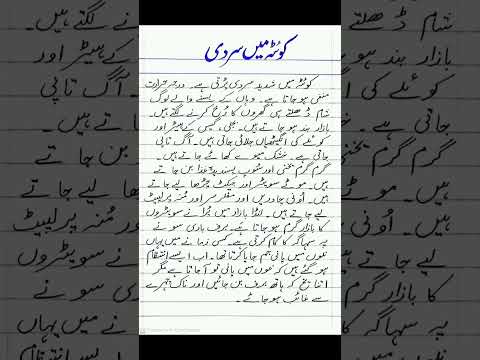 کوئٹہ میں سردی
کوئٹہ میں شدید سردی پڑتی ہے۔ درجہ حرارت
منفی ہو جاتا ہے۔ وہاں کے بسنے والے لوگ
شام ڈھلتے ہی گھروں کا رُخ کرنے لگتے ہیں۔
بازار بند ہو جاتے ہیں۔ بجلی، گیس کے ہیٹر اور
کوئلے کی انگیٹھیاں جلائی جاتی ہیں۔ آگ تاپی
جاتی ہے۔ خشک میوے کھائے جاتے ہیں۔
گرم گرم یخنی اور سُوپ پسندیدہ غذا بن جاتے
ہیں۔ موٹے سویٹر اور جیکٹ چڑھا لیے جاتے
ہیں۔ اُونی چادریں اور مفلر سر اور مُنہ پر لپیٹ
لیے جاتے ہیں۔ لنڈا بازار میں پُرانے سویٹروں
کا بازار گرم ہو جاتا ہے۔ برف باری سونے
پہ سہاگہ کا کام کرتی ہے۔ کسی زمانے میں یہاں
نلوں میں پانی جم جایا کرتا تھا۔ اب ایسے انتظام
ہو گئے ہیں کہ نلوں میں پانی تو آ جاتا ہے مگر
اتنا یخ کہ ہاتھ برف بن جائیں اور ناک چہرے
سے غائب ہو جائے۔